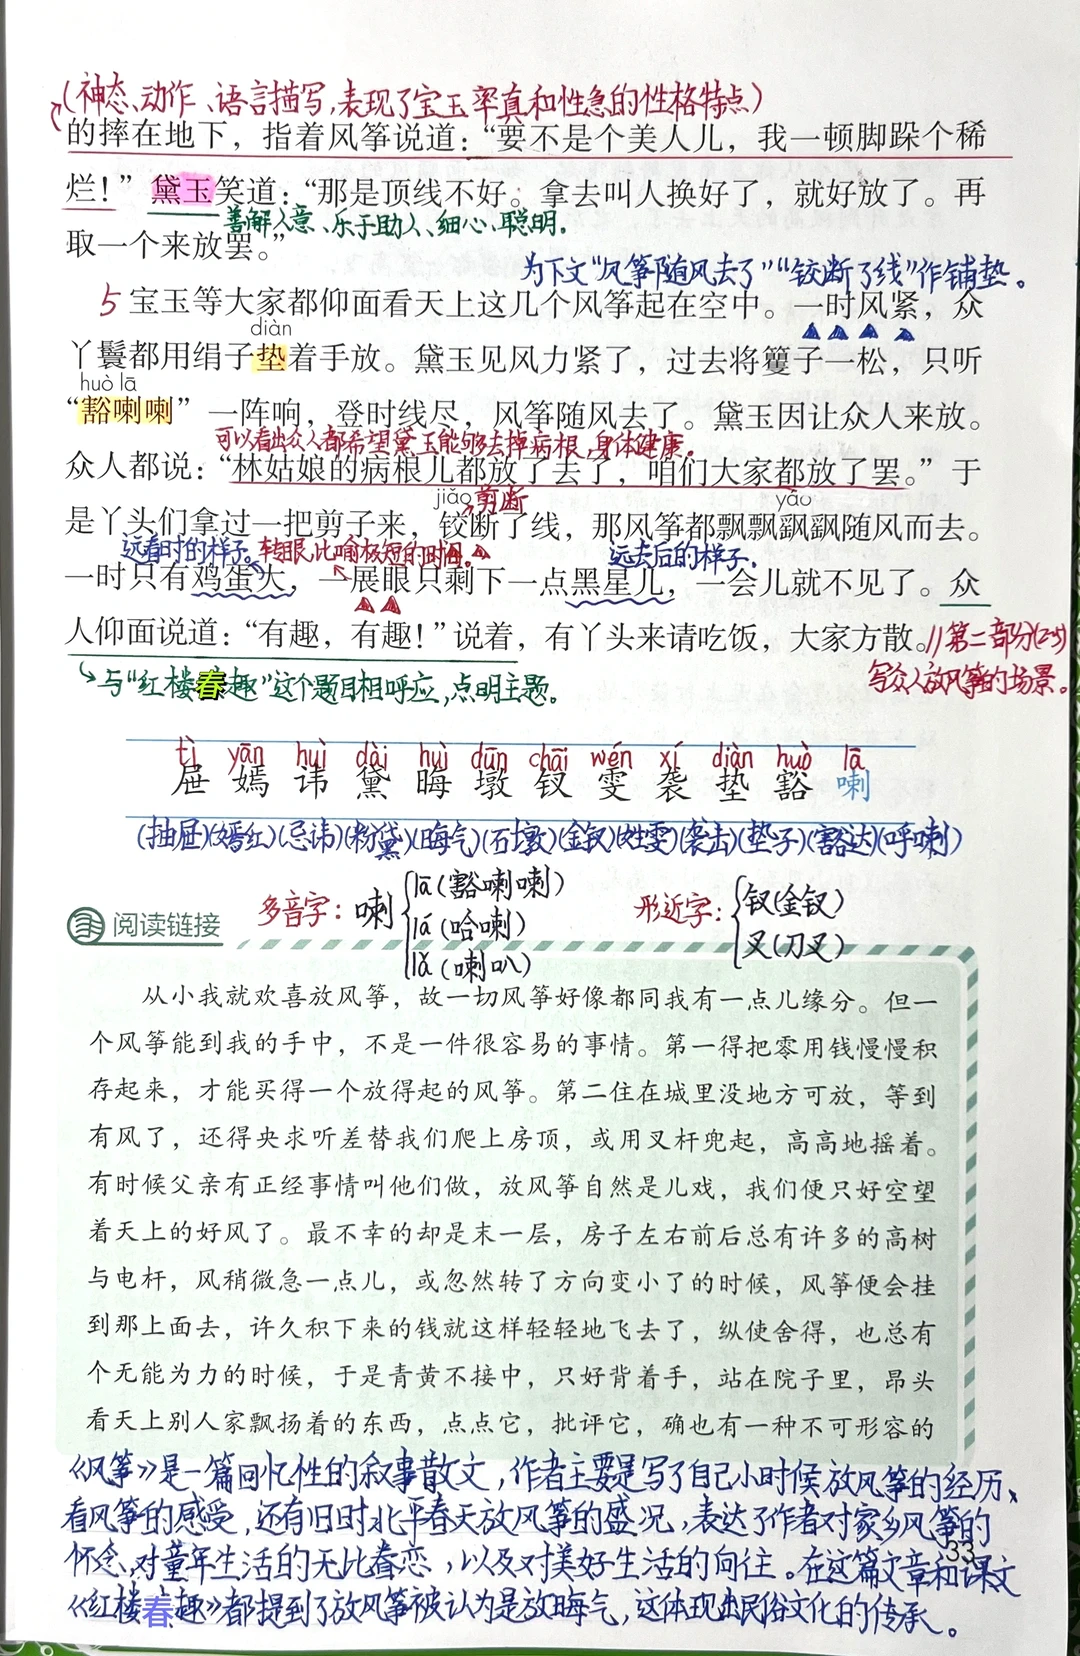 (神态、动作、语言描写,表现了宝玉率真和性急的性格特点)
的摔在地下，指着风筝说道：“要不是个美人儿，我一顿脚跺个稀
烂！”黛玉笑道：“那是顶线不好。拿去叫人换好了，就好放了。再
善解人意、乐于助人、细心、聪明。
取一个来放罢。”
为下文“风筝随风去了”“铰断了线”作铺垫。
5 宝玉等大家都仰面看天上这几个风筝起在空中。一时风紧，众
diàn
丫鬟都用绢子垫着手放。黛玉见风力紧了，过去将籰子一松，只听
huò lā
“豁喇喇”一阵响，登时线尽，风筝随风去了。黛玉因让众人来放。
可以看出众人都希望黛玉能够去掉病根,身体健康。
众人都说：“林姑娘的病根儿都放了去了，咱们大家都放了罢。”于
jiǎo 剪断 yáo
是丫头们拿过一把剪子来，铰断了线，那风筝都飘飘飖飖随风而去。
远看时的样子。转眼,比喻极短的时间。 远去后的样子.
一时只有鸡蛋大，一展眼只剩下一点黑星儿，一会儿就不见了。众
人仰面说道：“有趣，有趣！”说着，有丫头来请吃饭，大家方散。//第二部分(2-5)
与“红楼春趣”这个题目相呼应,点明主题。 写众人放风筝的场景。
tì yān huì dài huì dūn chāi wén xí diàn huò lā
屉 嫣 讳 黛 晦 墩 钗 雯 袭 垫 豁 喇
(抽屉)(嫣红)(忌讳)(粉黛)(晦气)(石墩)(金钗)(姓雯)(袭击)(垫子)(豁达)(呼喇)
多音字: 喇 lā(豁喇喇) 形近字: 钗(金钗)
lá(哈喇) 叉(刀叉)
lǎ(喇叭)
阅读链接
从小我就欢喜放风筝，故一切风筝好像都同我有一点儿缘分。但一
个风筝能到我的手中，不是一件很容易的事情。第一得把零用钱慢慢积
存起来，才能买得一个放得起的风筝。第二住在城里没地方可放，等到
有风了，还得央求听差替我们爬上房顶，或用叉杆兜起，高高地摇着。
有时候父亲有正经事情叫他们做，放风筝自然是儿戏，我们便只好空望
着天上的好风了。最不幸的却是末一层，房子左右前后总有许多的高树
与电杆，风稍微急一点儿，或忽然转了方向变小了的时候，风筝便会挂
到那上面去，许久积下来的钱就这样轻轻地飞去了，纵使舍得，也总有
个无能为力的时候，于是青黄不接中，只好背着手，站在院子里，昂头
看天上别人家飘扬着的东西，点点它，批评它，确也有一种不可形容的
《风筝》是一篇回忆性的叙事散文,作者主要是写了自己小时候放风筝的经历、
看风筝的感受,还有旧时北平春天放风筝的盛况,表达了作者对家乡风筝的
怀念、对童年生活的无比眷恋,以及对美好生活的向往。在这篇文章和课文
33
《红楼春趣》都提到了放风筝被认为是放晦气,这体现出民俗文化的传承。